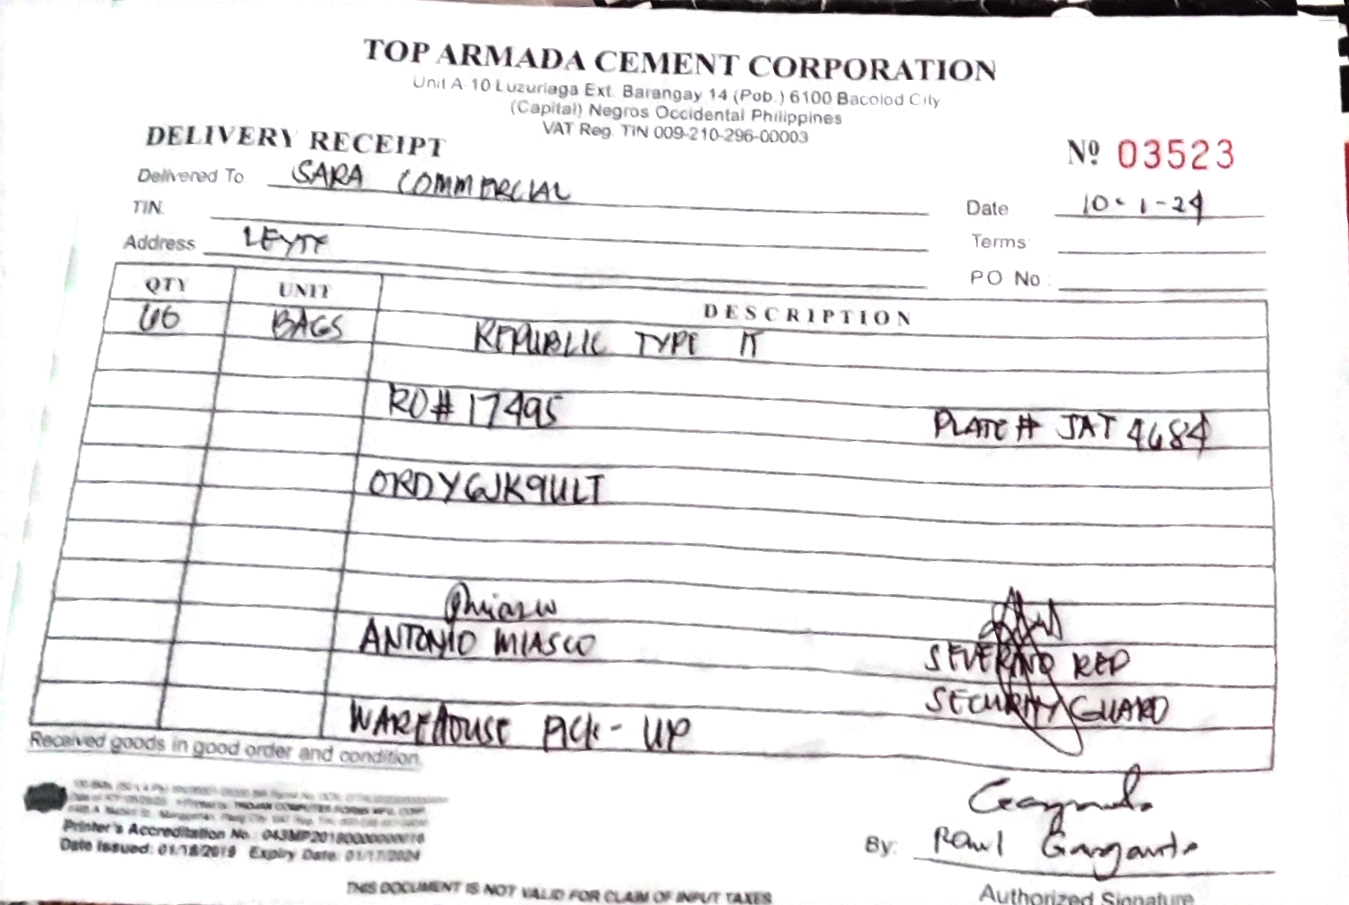 TOP ARMADA CEMENT CORPORATION
Unit A-10 Luzuriaga Ext. Barangay 14 (Pob.) 6100 Bacolod City
(Capital) Negros Occidental Philippines
VAT Reg. TIN 009-210-296-00003
DELIVERY RECEIPT
Nº 03523
Delivered To SARA COMMERCIAL
Date 10-1-24
TIN.
Terms
Address LEYTE
PO No.:
QTY UNIT DESCRIPTION
BAGS REPUBLIC TYPE IT
RO# 17495 PLATE# JAT 4684
ORDYGJK9ULT
ANTONIO MIASCO
SEVERINO RED
SECURITY GUARD
WAREHOUSE PICK-UP
Received goods in good order and condition.
Printer's Accreditation No.: 043MP20180000000016
Date Issued: 01/18/2019 Expiry Date: 01/17/2024
By: Raul Garganta
THIS DOCUMENT IS NOT VALID FOR CLAIM OF INPUT TAXES
Authorized Signature